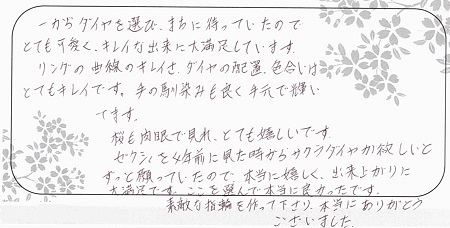 一からダイヤを選び、まちに待っていたので
とても可愛く、キレイな出来に大満足しています。
リングの曲線のキレイさ、ダイヤの配置、色合いは
とてもキレイです。手の馴染みも良く手元で輝い
てます。
桜も肉眼で見れ、とても嬉しいです。
ゼクシィを4年前に見た時からサクラダイヤが欲しいと
ずっと願っていたので、本当に嬉しく、出来上がりに
大満足です。ここを選んで本当に良かったです。
素敵な指輪を作って下さり、本当にありがとう
ございました。